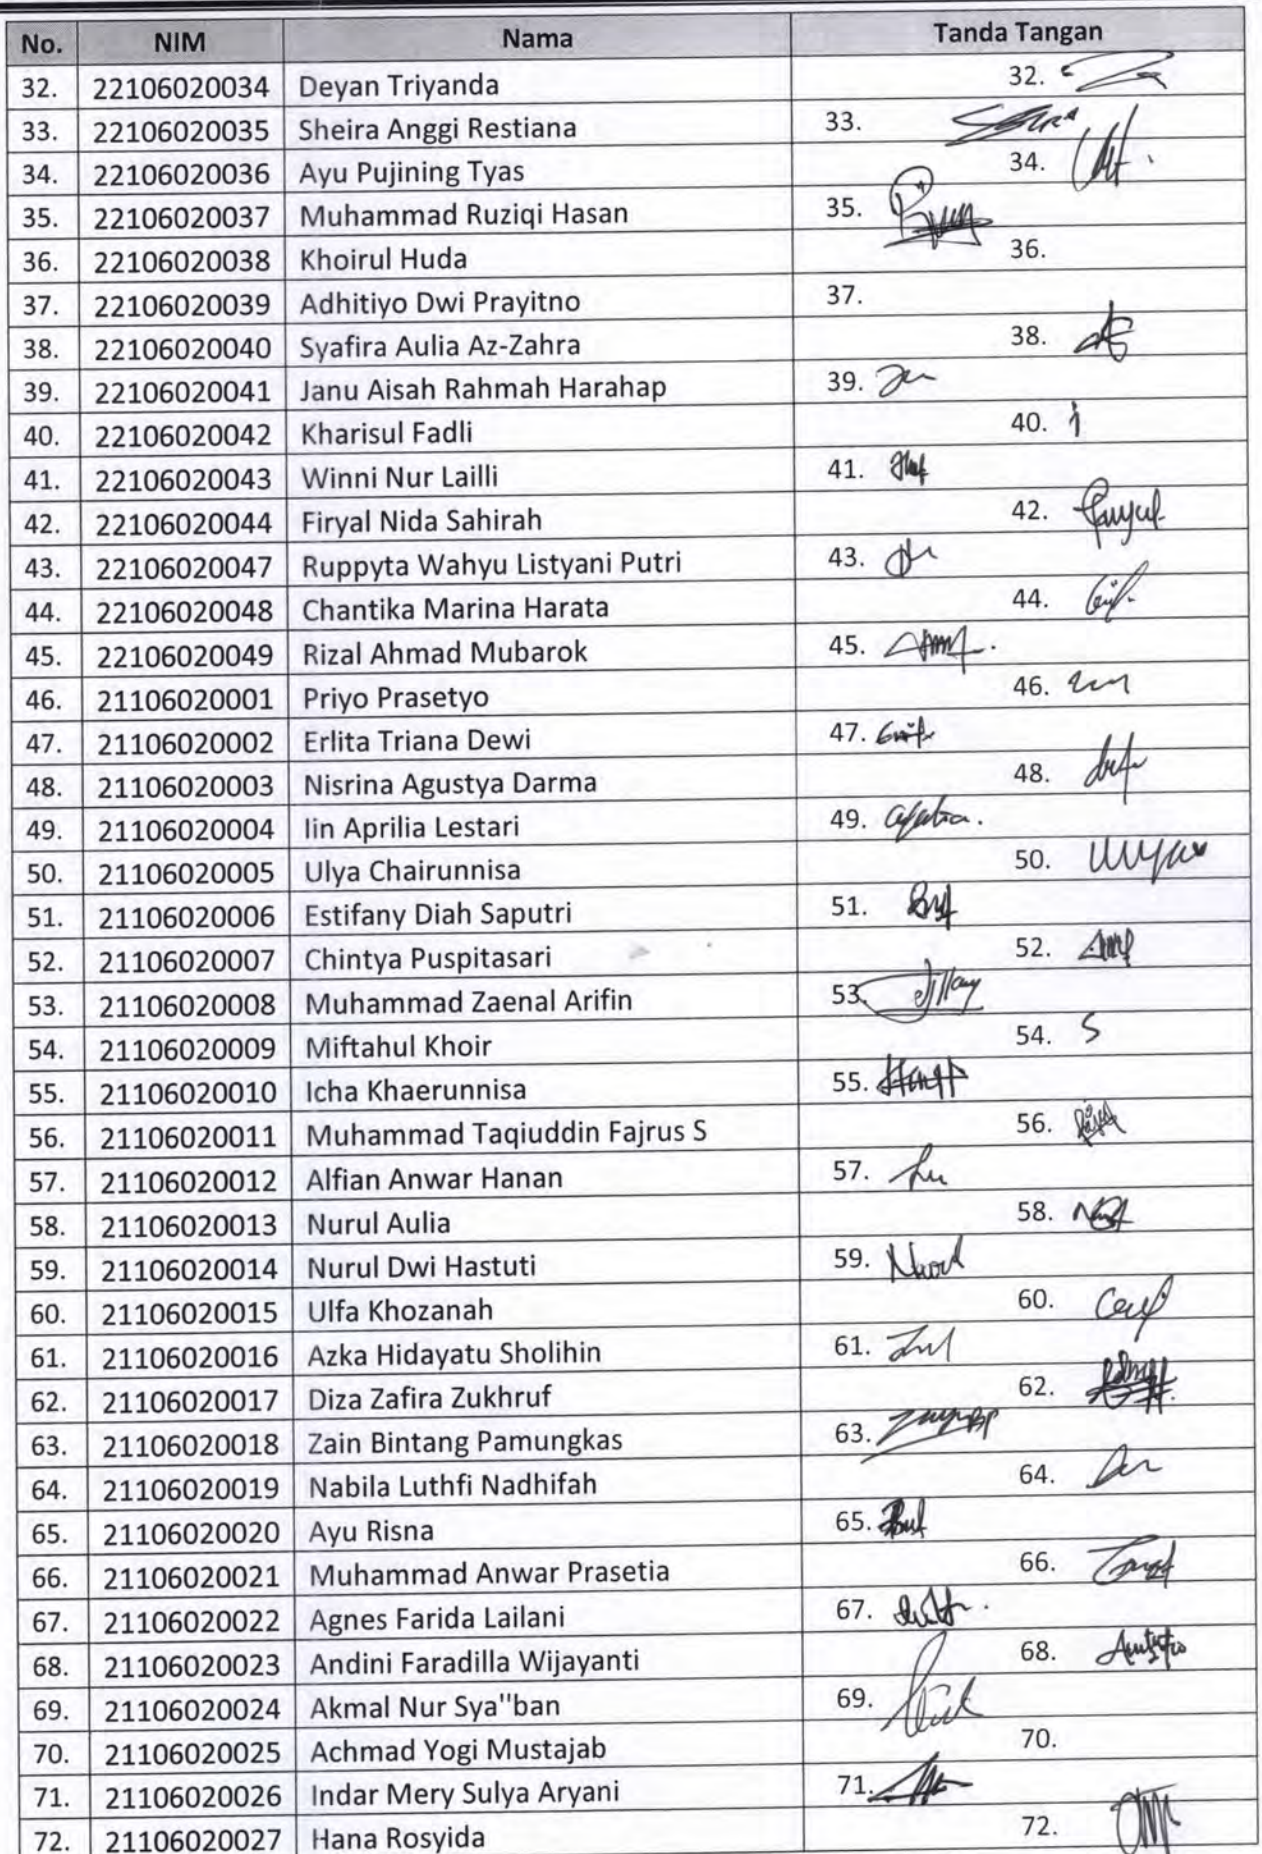 No. NIM Nama Tanda Tangan
32. 22106020034 Deyan Triyanda 32.
33. 22106020035 Sheira Anggi Restiana 33.
34. 22106020036 Ayu Pujining Tyas 34.
35. 22106020037 Muhammad Ruziqi Hasan 35.
36. 22106020038 Khoirul Huda 36.
37. 22106020039 Adhitiyo Dwi Prayitno 37.
38. 22106020040 Syafira Aulia Az-Zahra 38.
39. 22106020041 Janu Aisah Rahmah Harahap 39.
40. 22106020042 Kharisul Fadli 40.
41. 22106020043 Winni Nur Lailli 41.
42. 22106020044 Firyal Nida Sahirah 42.
43. 22106020047 Ruppyta Wahyu Listyani Putri 43.
44. 22106020048 Chantika Marina Harata 44.
45. 22106020049 Rizal Ahmad Mubarok 45.
46. 21106020001 Priyo Prasetyo 46.
47. 21106020002 Erlita Triana Dewi 47.
48. 21106020003 Nisrina Agustya Darma 48.
49. 21106020004 Iin Aprilia Lestari 49.
50. 21106020005 Ulya Chairunnisa 50.
51. 21106020006 Estifany Diah Saputri 51.
52. 21106020007 Chintya Puspitasari 52.
53. 21106020008 Muhammad Zaenal Arifin 53.
54. 21106020009 Miftahul Khoir 54.
55. 21106020010 Icha Khaerunnisa 55.
56. 21106020011 Muhammad Taqiuddin Fajrus S 56.
57. 21106020012 Alfian Anwar Hanan 57.
58. 21106020013 Nurul Aulia 58.
59. 21106020014 Nurul Dwi Hastuti 59.
60. 21106020015 Ulfa Khozanah 60.
61. 21106020016 Azka Hidayatu Sholihin 61.
62. 21106020017 Diza Zafira Zukhruf 62.
63. 21106020018 Zain Bintang Pamungkas 63.
64. 21106020019 Nabila Luthfi Nadhifah 64.
65. 21106020020 Ayu Risna 65.
66. 21106020021 Muhammad Anwar Prasetia 66.
67. 21106020022 Agnes Farida Lailani 67.
68. 21106020023 Andini Faradilla Wijayanti 68.
69. 21106020024 Akmal Nur Sya"ban 69.
70. 21106020025 Achmad Yogi Mustajab 70.
71. 21106020026 Indar Mery Sulya Aryani 71.
72. 21106020027 Hana Rosyida 72.